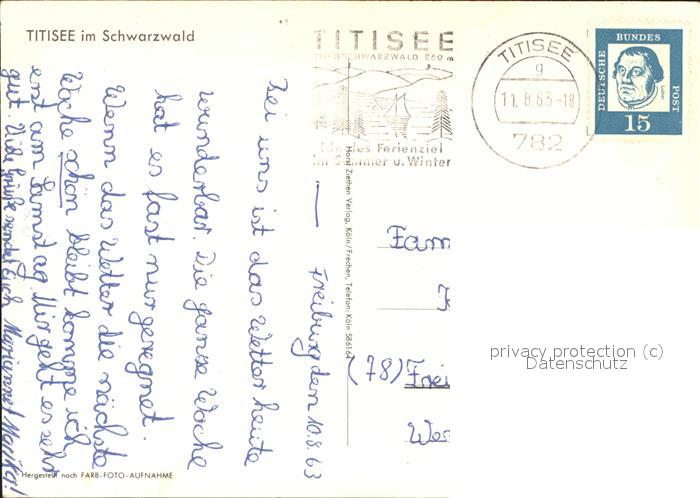 TITISEE im Schwarzwald
TITISEE
HOCHSCHWARZWALD 860 m
Ideales Ferienziel
im Sommer u. Winter
TITISEE
g
11.8.63-18
782
DEUTSCHE
BUNDES
POST
Luther
15
Freiburg den 10.8.63
Bei uns ist das Wetter heute
wunderbar. Die ganze Woche
hat es fast nur geregnet.
Wenn das Wetter die nächste
Woche schön bleibt komme ich
erst am Samstag. Mir geht es sehr
gut. Viele Grüße sendet Euch Marianne + Marika!
Horst Ziethen Verlag, Köln/Frechen, Telefon: Köln 586164
Fam
(78) Frei
Hergestellt nach FARB-FOTO-AUFNAHME
privacy protection (c)
Datenschutz